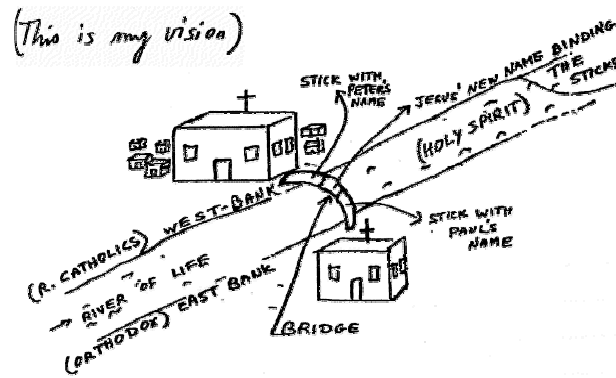 (This is my vision)
STICK WITH
PETER'S
NAME
JESUS' NEW NAME BINDING
THE
STICKS
(HOLY SPIRIT)
(R. CATHOLICS) WEST-BANK
RIVER OF LIFE
(ORTHODOX) EAST BANK
STICK WITH
PAUL'S
NAME
BRIDGE